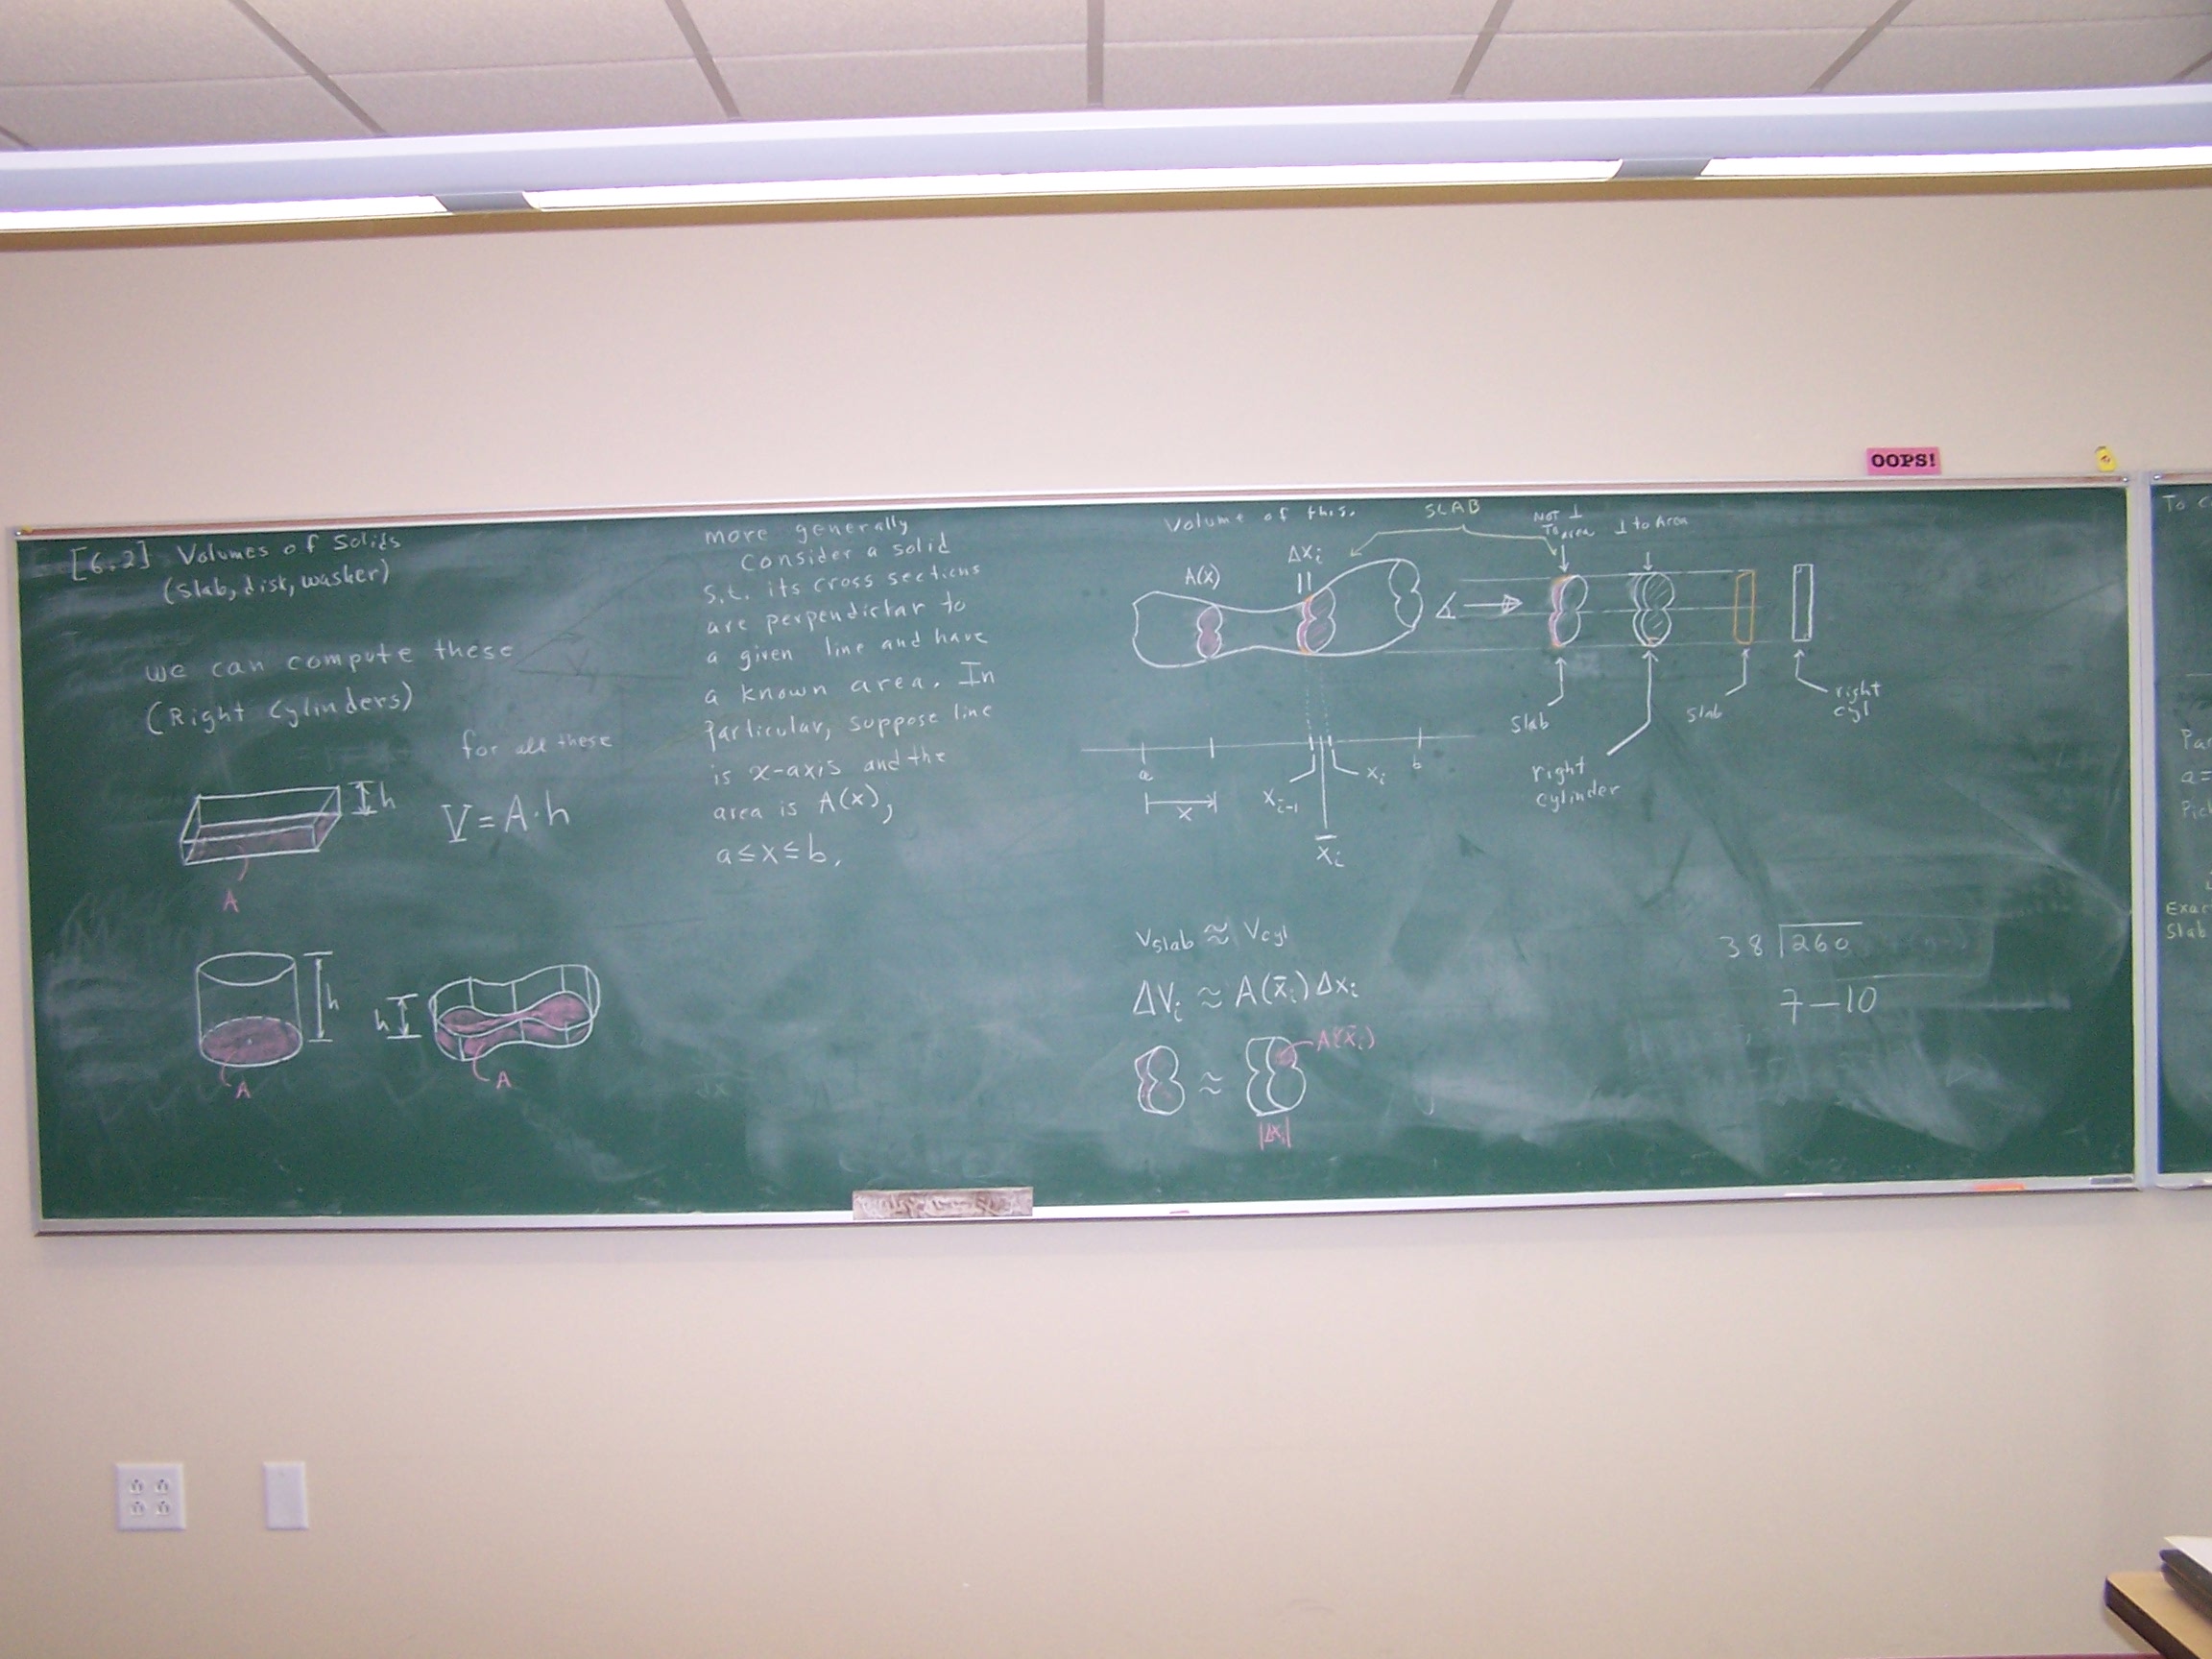 OOPS!
[6.2] Volumes of Solids
(slab, disk, washer)
we can compute these
(Right Cylinders)
for all these
h
V = A·h
A
h
A
h
A
more generally
Consider a solid
s.t. its cross sections
are perpendictar to
a given line and have
a known area. In
particular, suppose line
is x-axis and the
area is A(x),
a ≤ x ≤ b.
Volume of this.
SLAB
NOT ⊥
To area
⊥ to Area
A(x)
Δxᵢ
slab
right
cylinder
slab
right
cyl
a
b
x
xᵢ₋₁
xᵢ
x̄ᵢ
Vslab ≈ Vcyl
ΔVᵢ ≈ A(x̄ᵢ)Δxᵢ
≈
A(x̄ᵢ)
|Δxᵢ|
38 260
7—10
To
a=
Slab